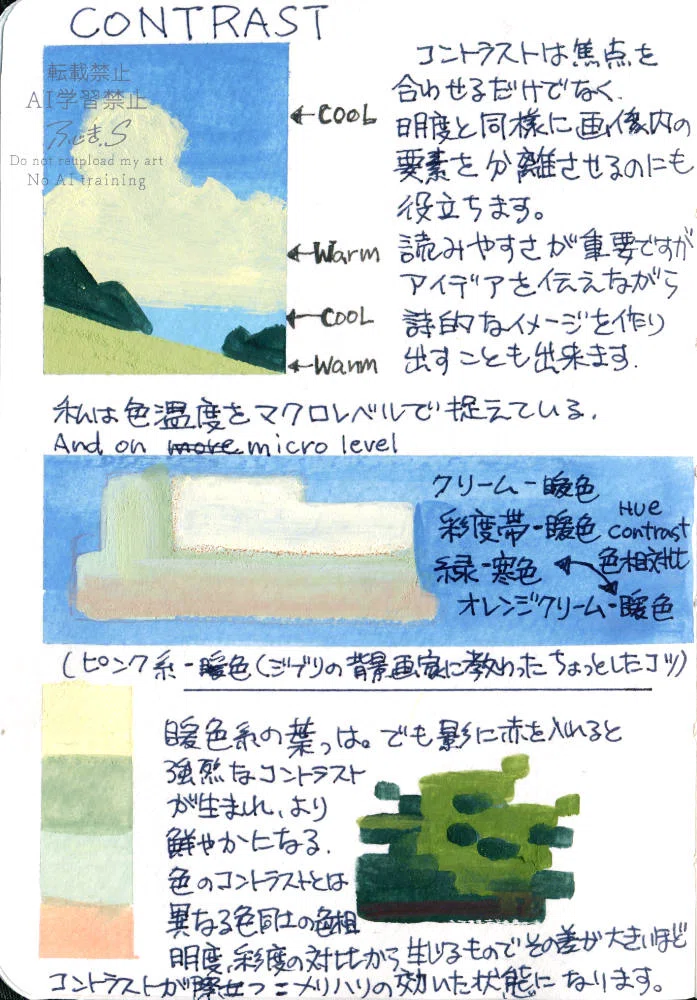 CONTRAST
転載禁止
AI学習禁止
Do not reupload my art
No AI training
← COOL
← Warm
← COOL
← Warm
コントラストは焦点を
合わせるだけでなく、
明度と同様に画像内の
要素を分離させるのにも
役立ちます。
読みやすさが重要ですが
アイデアを伝えながら
詩的なイメージを作り
出すことも出来ます.
私は色温度をマクロレベルで捉えている.
And on more micro level
クリームー暖色
彩度帯-暖色
緑-寒色
オレンジクリーム-暖色
Hue
contrast
色相対比
(ピンク系-暖色(ジブリの背景画家に教わったちょっとしたコツ)
暖色系の葉っぱ。でも影に赤を入れると
強烈なコントラスト
が生まれ、より
鮮やかになる.
色のコントラストとは
異なる色同士の色相
明度、彩度の対比から生じるものでその差が大きいほど
コントラストが際立つ=メリハリの効いた状態になります。